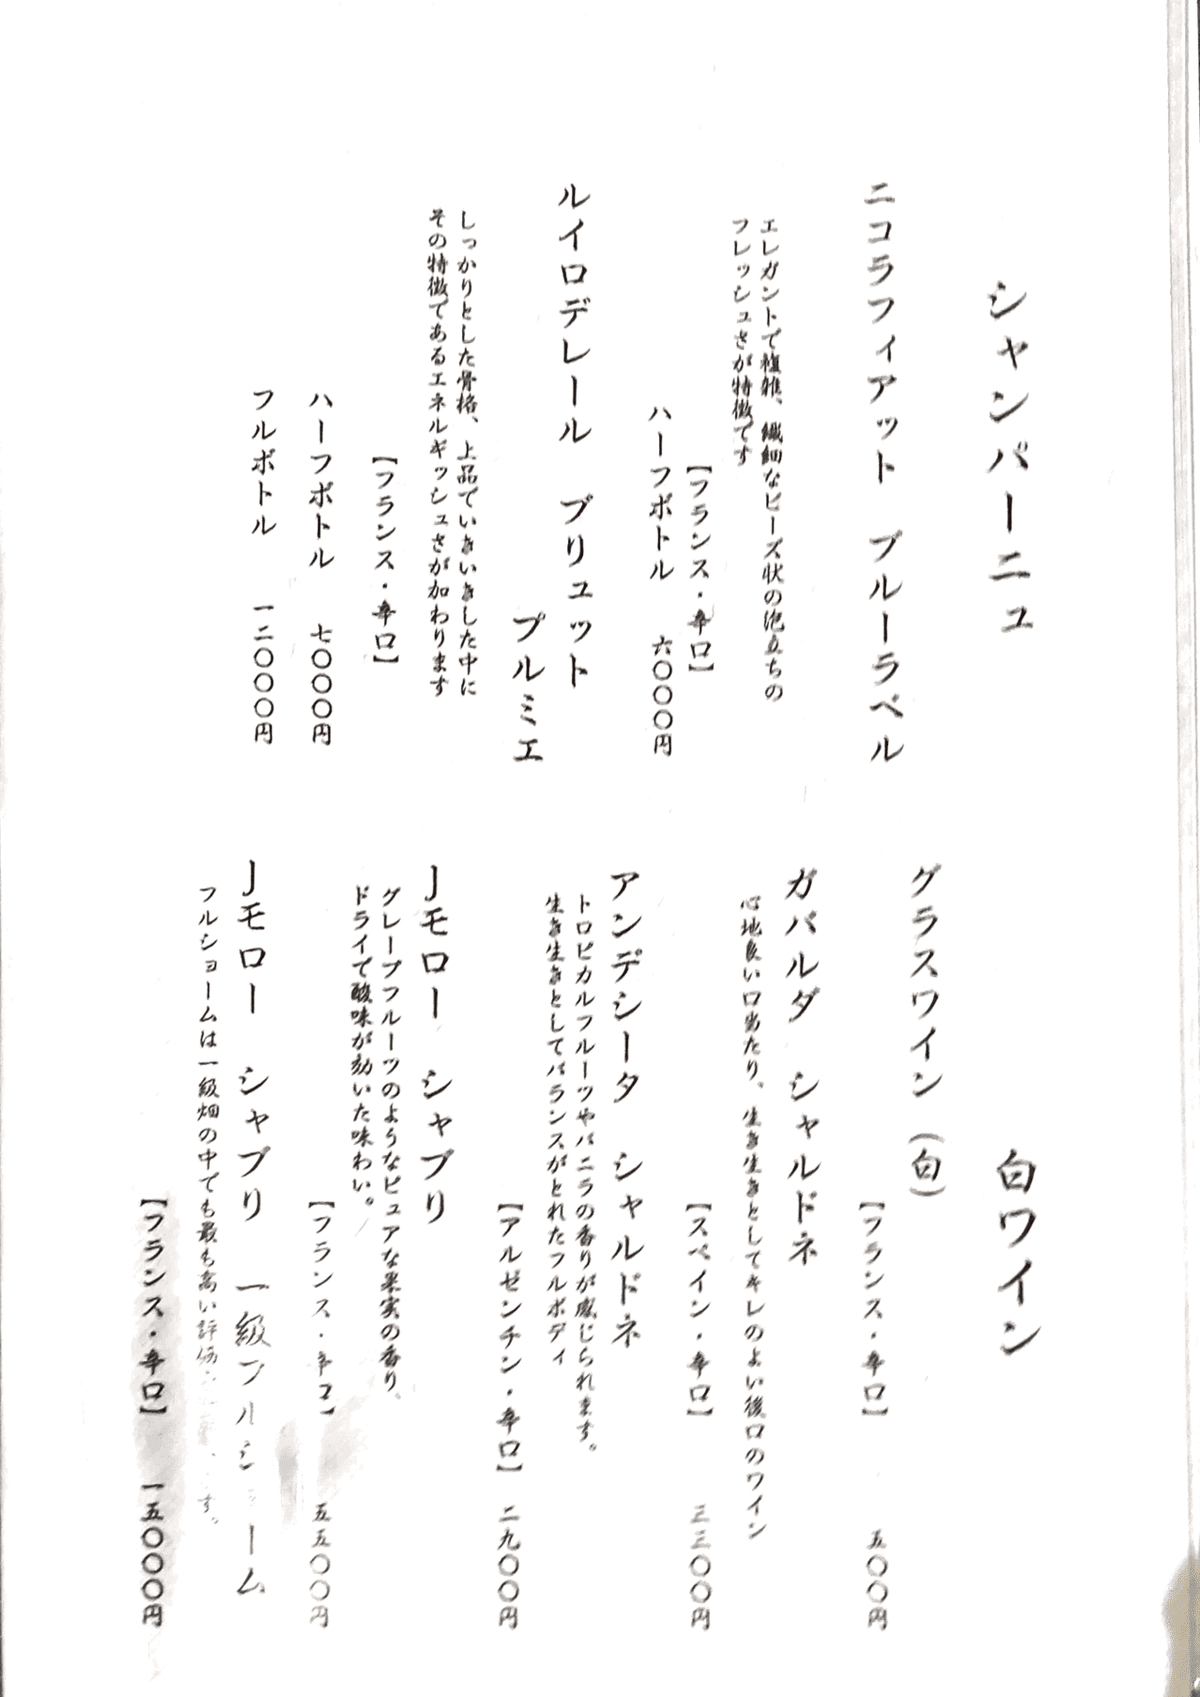 シャンパーニュ
ニコラフィアット ブルーラベル
エレガントで複雑、繊細なビーズ状の泡立ちの
フレッシュさが特徴です
【フランス・辛口】
ハーフボトル 六〇〇〇円
ルイロデレール ブリュット
プルミエ
しっかりとした骨格、上品でいきいきした中に
その特徴であるエネルギッシュさが加わります
【フランス・辛口】
ハーフボトル 七〇〇〇円
フルボトル 一二〇〇〇円
白ワイン
グラスワイン(白)
【フランス・辛口】 五〇〇円
ガバルダ シャルドネ
心地良い口当たり、生き生きとしてキレのよい後口のワイン
【スペイン・辛口】 三三〇〇円
アンデシータ シャルドネ
トロピカルフルーツやバニラの香りが感じられます。
生き生きとしてバランスがとれたフルボディ
【アルゼンチン・辛口】 二九〇〇円
Jモロー シャブリ
グレープフルーツのようなピュアな果実の香り、
ドライで酸味が効いた味わい。
【フランス・辛口】 五五〇〇円
Jモロー シャブリ 一級フルショーム
フルショームは一級畑の中でも最も高い評価 す。
【フランス・辛口】 一五〇〇〇円